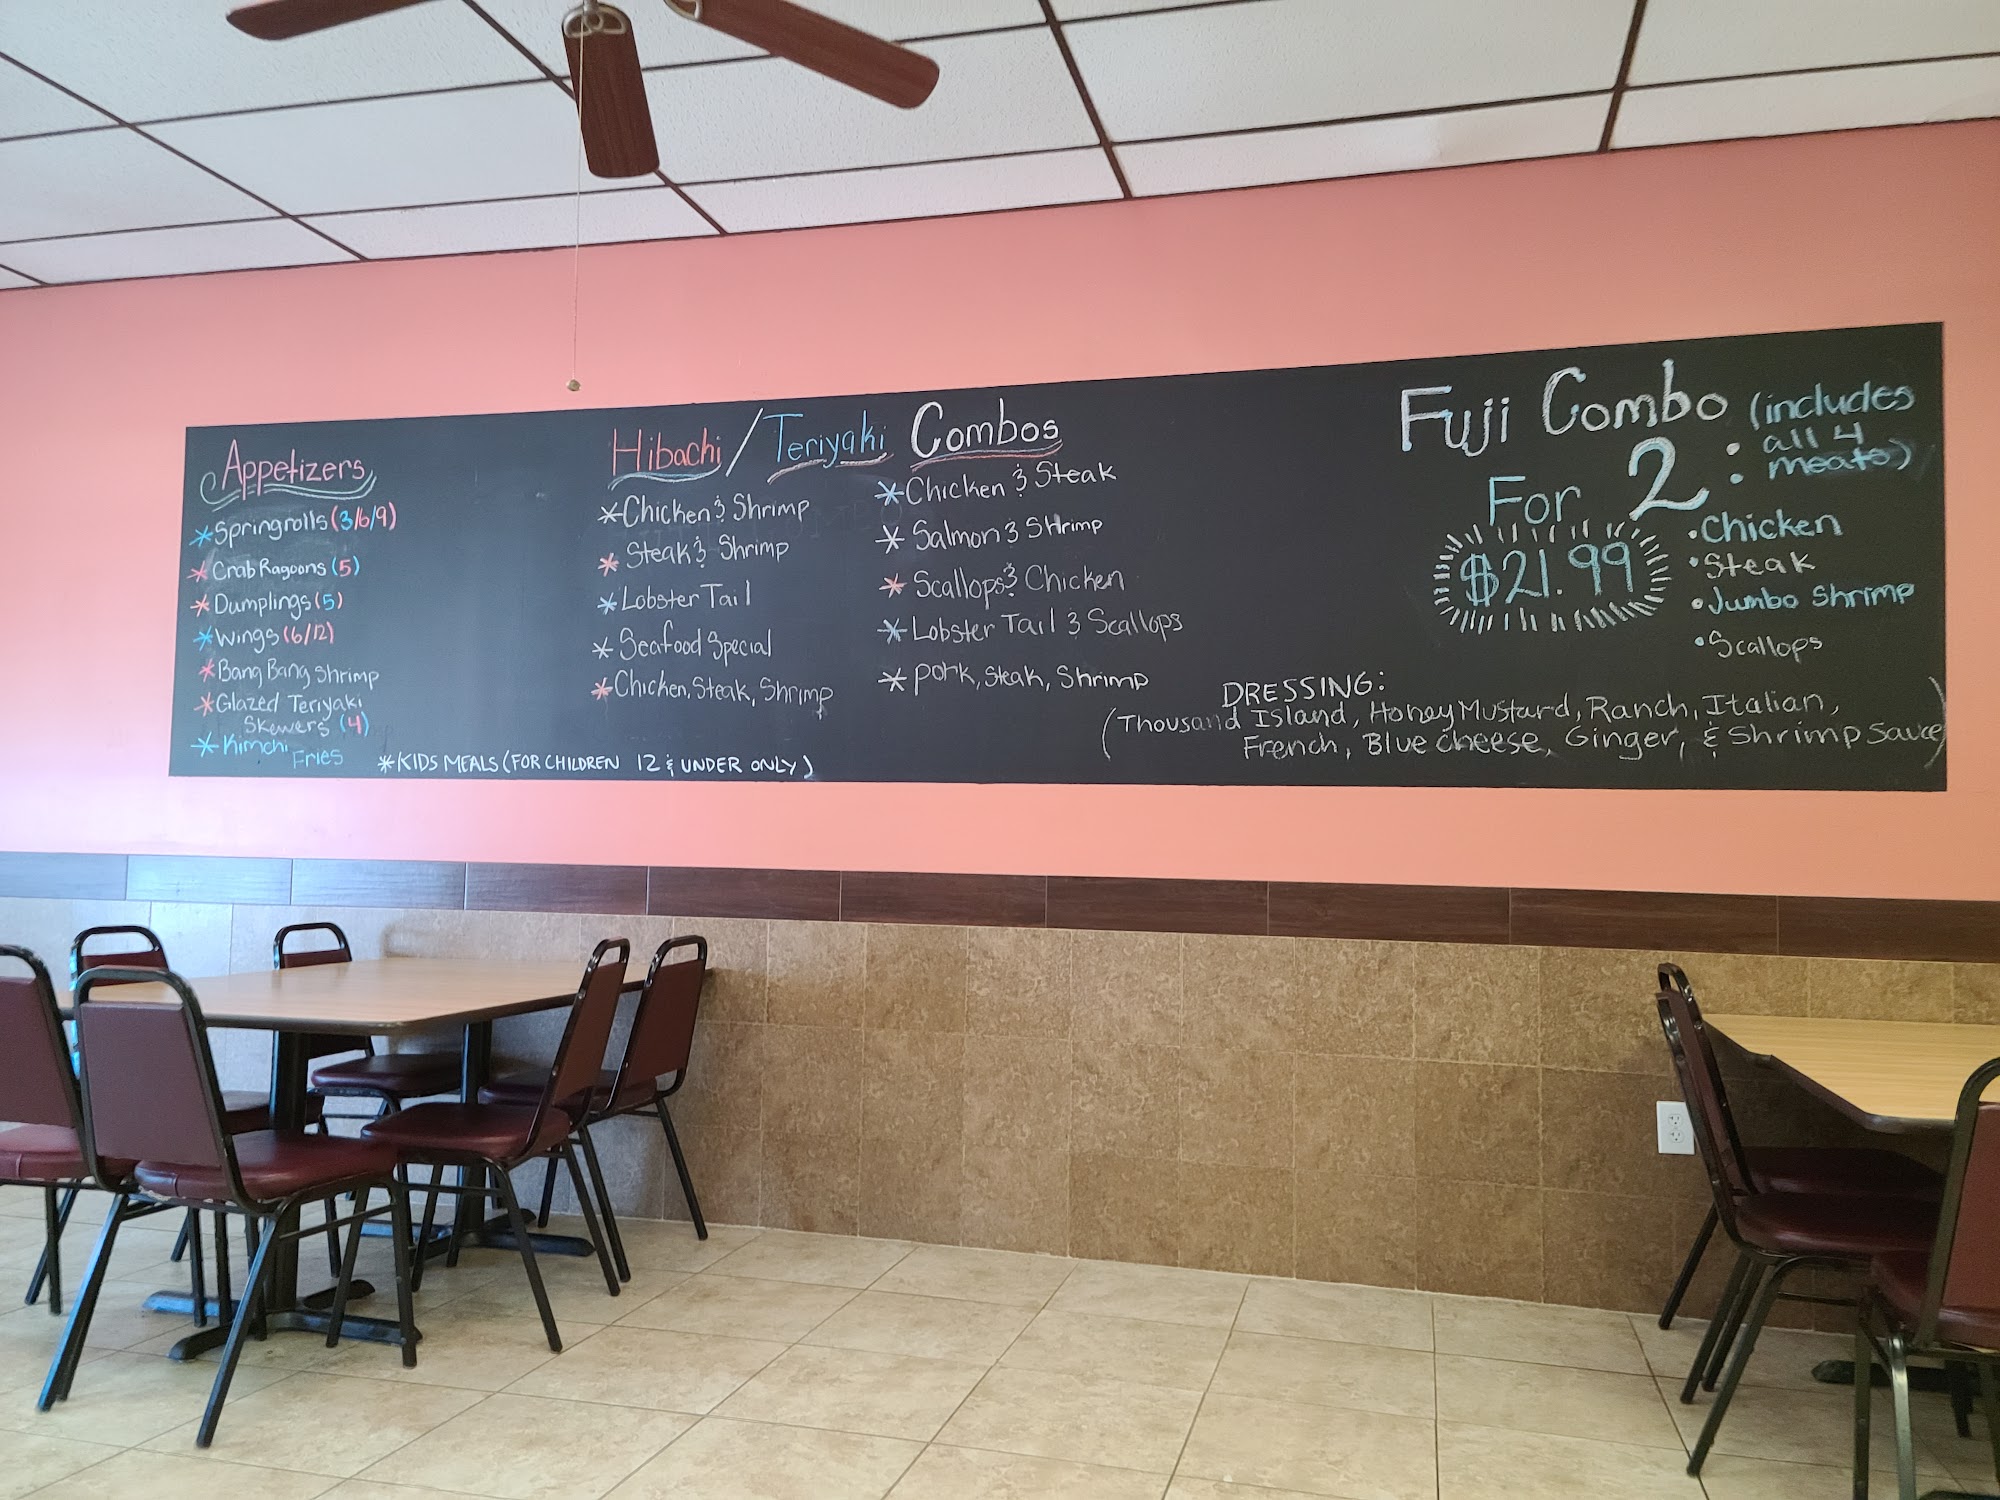 Appetizers
*Springrolls (3/6/9)
*Crab Ragoons (5)
*Dumplings (5)
*Wings (6/12)
*Bang Bang Shrimp
*Glazed Teriyaki
Skewers (4)
*Kimchi
Fries
*KIDS MEALS (FOR CHILDREN 12 & UNDER ONLY)
Hibachi/Teriyaki Combos
*Chicken & Shrimp
*Steak & Shrimp
*Lobster Tail
*Seafood Special
*Chicken, Steak, Shrimp
*Chicken & Steak
*Salmon & Shrimp
*Scallops & Chicken
*Lobster Tail & Scallops
*Pork, Steak, Shrimp
Fuji Combo (includes
all 4
meats)
For 2:
$21.99
•Chicken
•Steak
•Jumbo Shrimp
•Scallops
DRESSING:
(Thousand Island, Honey Mustard, Ranch, Italian,
French, Blue cheese, Ginger, & Shrimp Sauce)